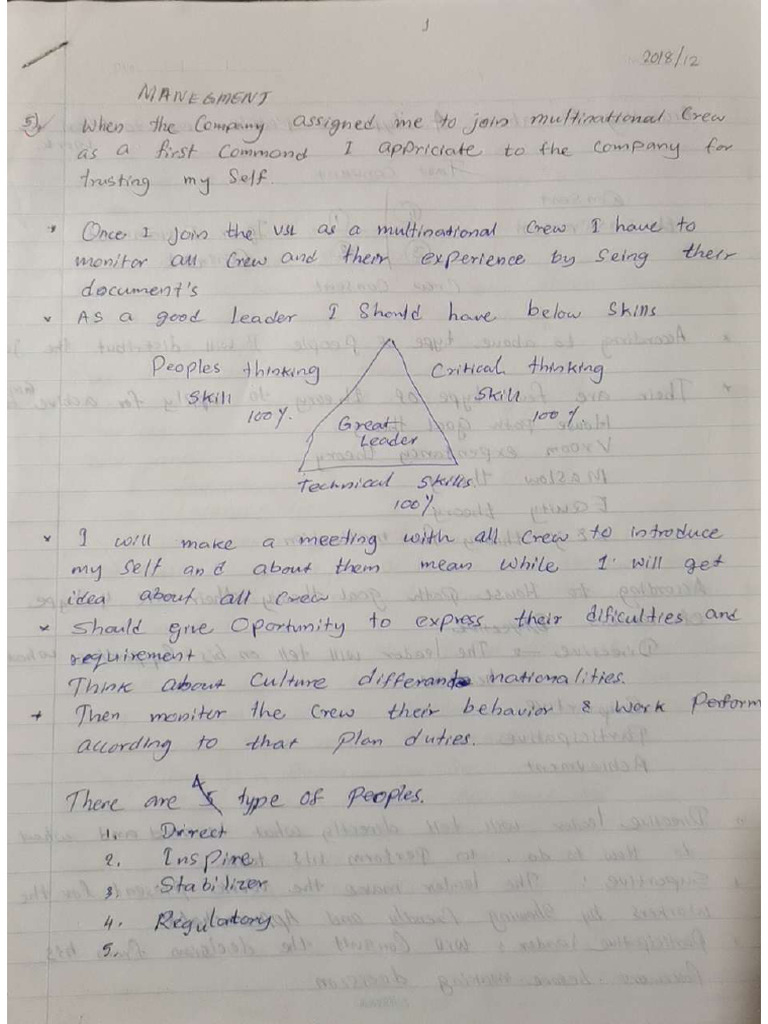 1
2018/12
MANEGMENT
5), When the Company assigned me to join multinational Crew
as a first Command I appriciate to the company for
trusting my Self.
* Once I join the vsl as a multinational Crew I have to
monitor all Crew and their experience by Seing their
document's
* As a good leader I Should have below Skills
Peoples thinking Critical thinking
Skill Skill
100%. 100%
Great
Leader
Technical Skills
100%
* I will make a meeting with all Crew to introduce
my Self and about them mean while I will get
idea about all Crew
* Should give Oportunity to express their dificulties and
requirement
Think about Culture differand nationalities.
* Then moniter the Crew their behavior & Work Perform
according to that Plan duties.
There are 4 type of Peoples.
1. Direct
2. Inspire
3. Stabilizer
4. Regulatory
5.